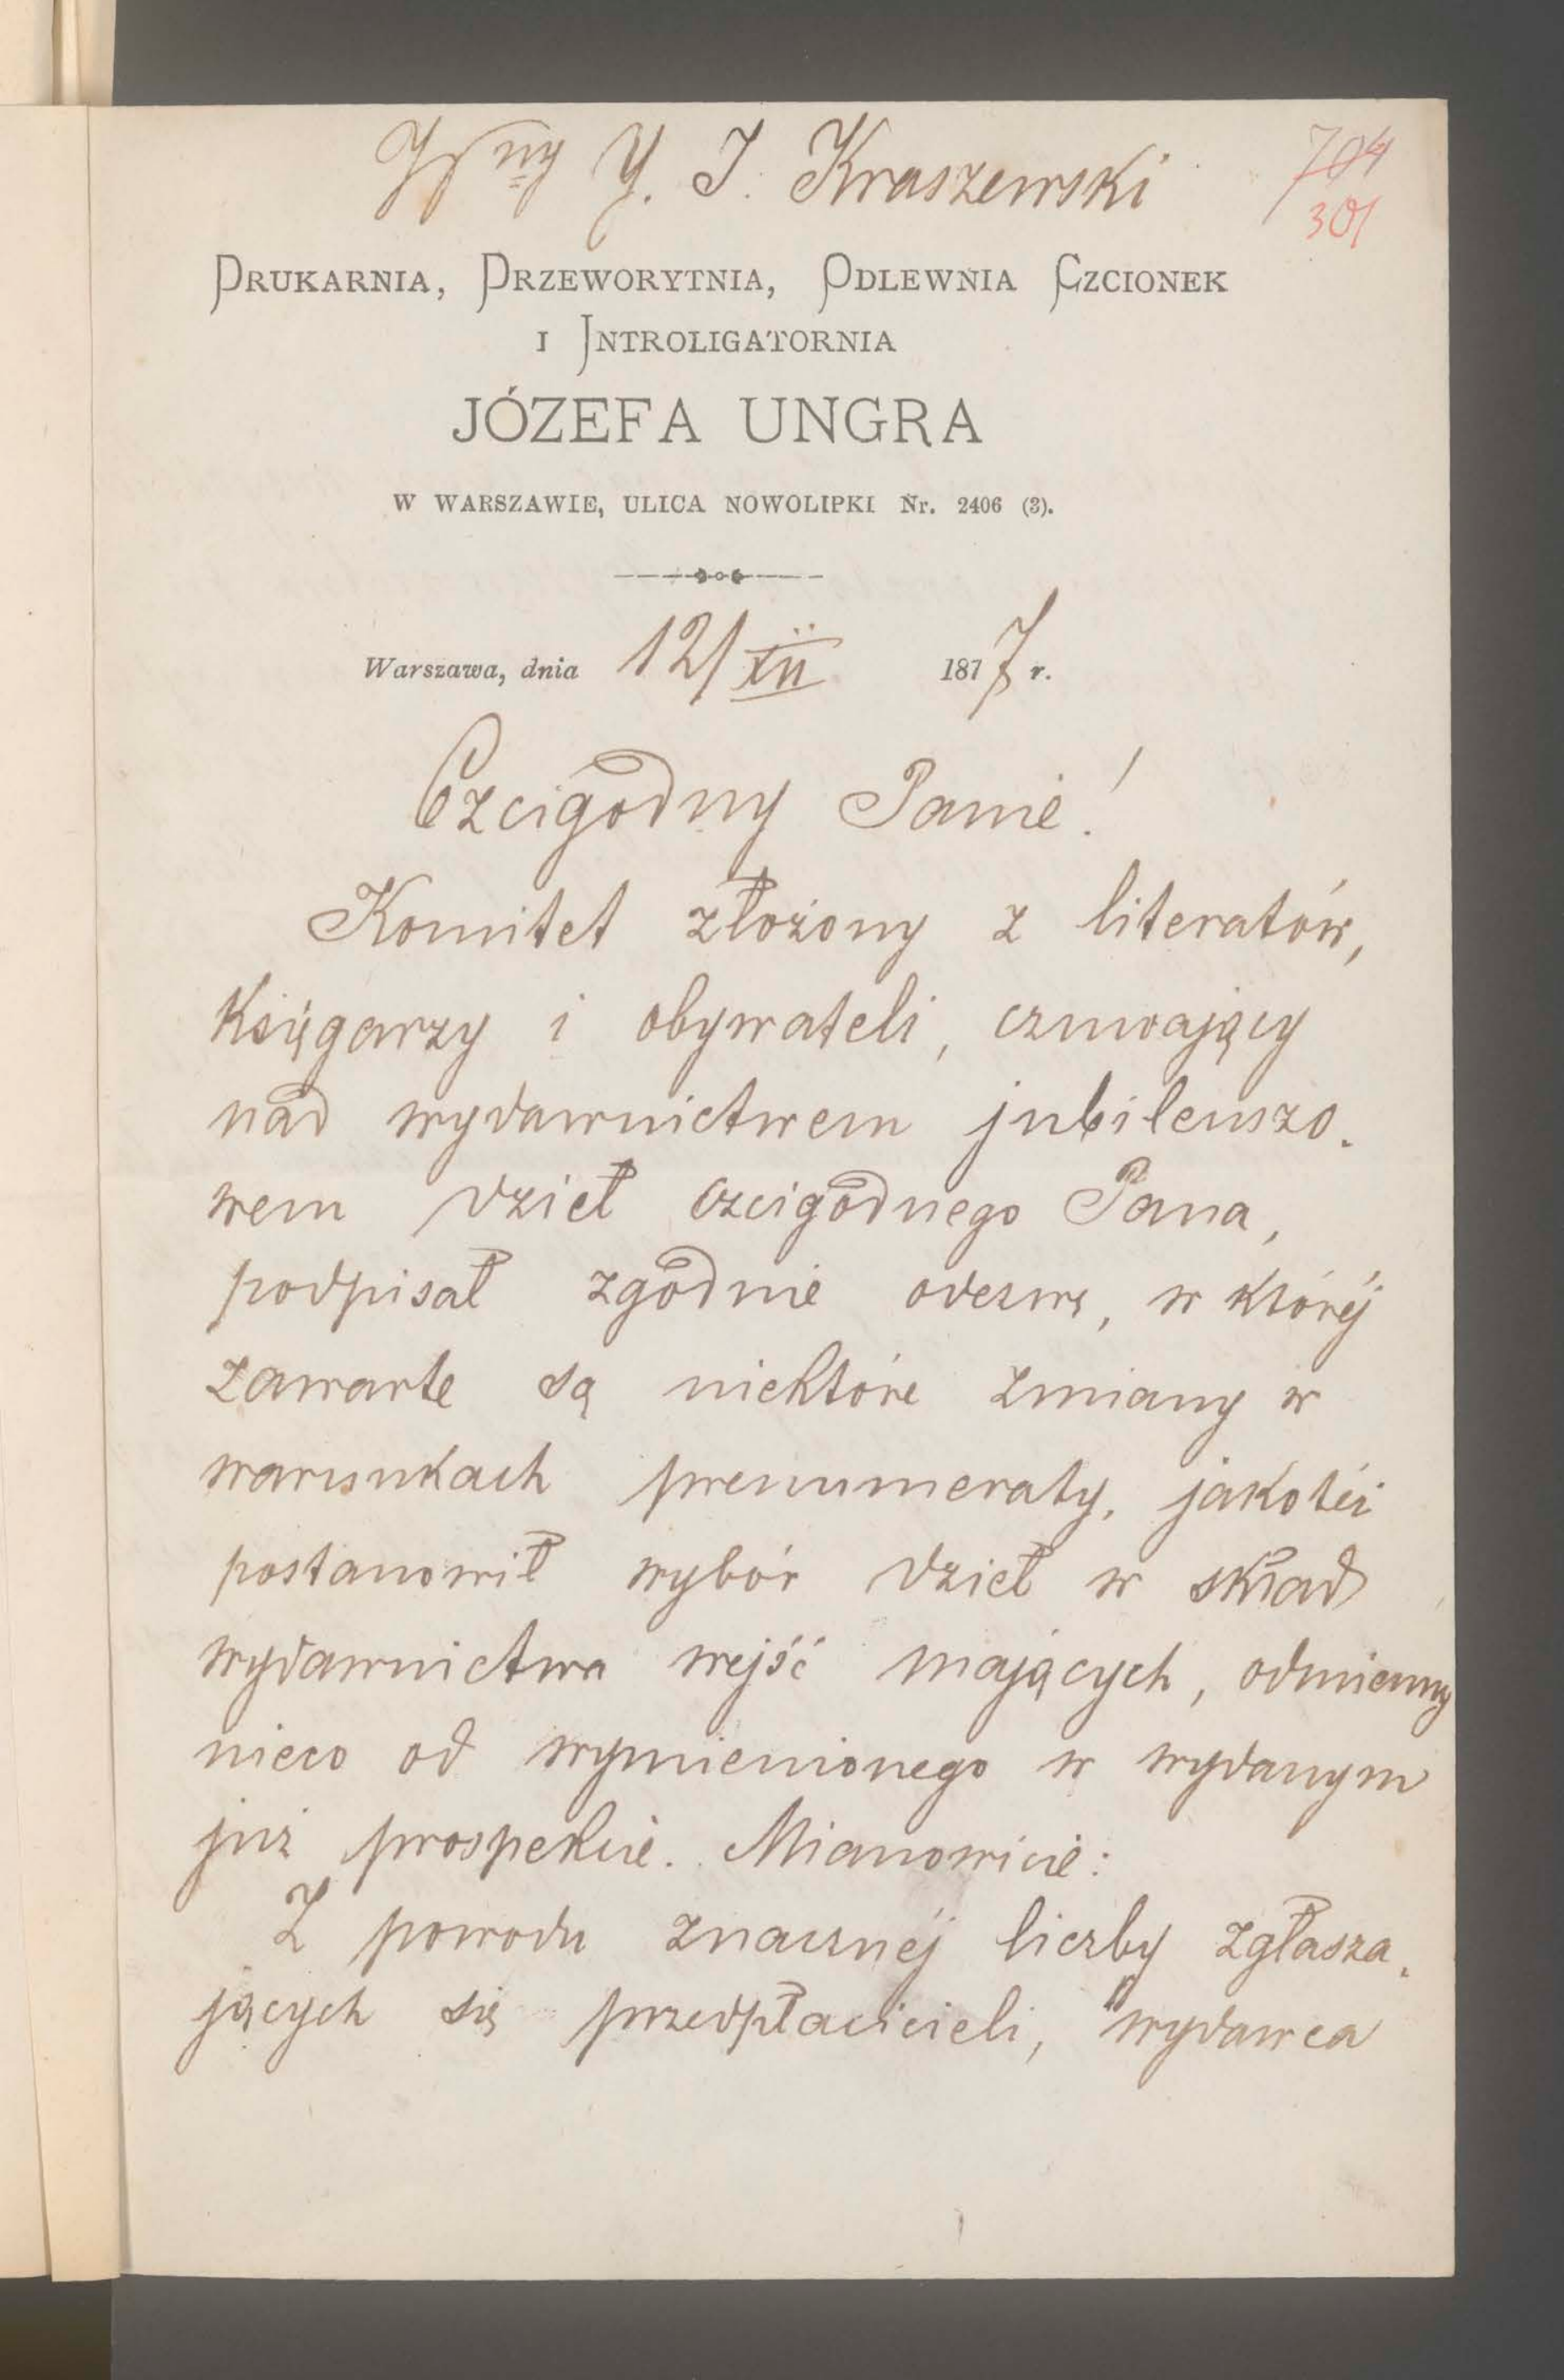 Wny J. I. Kraszewski
704
301
Drukarnia, Przeworytnia, Odlewnia Czcionek
i Introligatornia
JÓZEFA UNGRA
W WARSZAWIE, ULICA NOWOLIPKI Nr. 2406 (3).
Warszawa, dnia 12/XII 1877 r.
Czcigodny Panie!
Komitet złożony z literatów,
księgarzy i obywateli, czuwający
nad wydawnictwem jubileuszo-
wem dzieł czcigodnego Pana,
podpisał zgodnie odezwę, w któréj
zawarte są niektóre zmiany w
warunkach prenumeraty, jakotéż
postanowił wybór dzieł w skład
wydawnictwa wejść mających, odmienny
nieco od wymienionego w wydanym
już prospekcie. Mianowicie:
Z powodu znacznéj liczby zgłasza-
jących się przedpłacicieli, wydawca